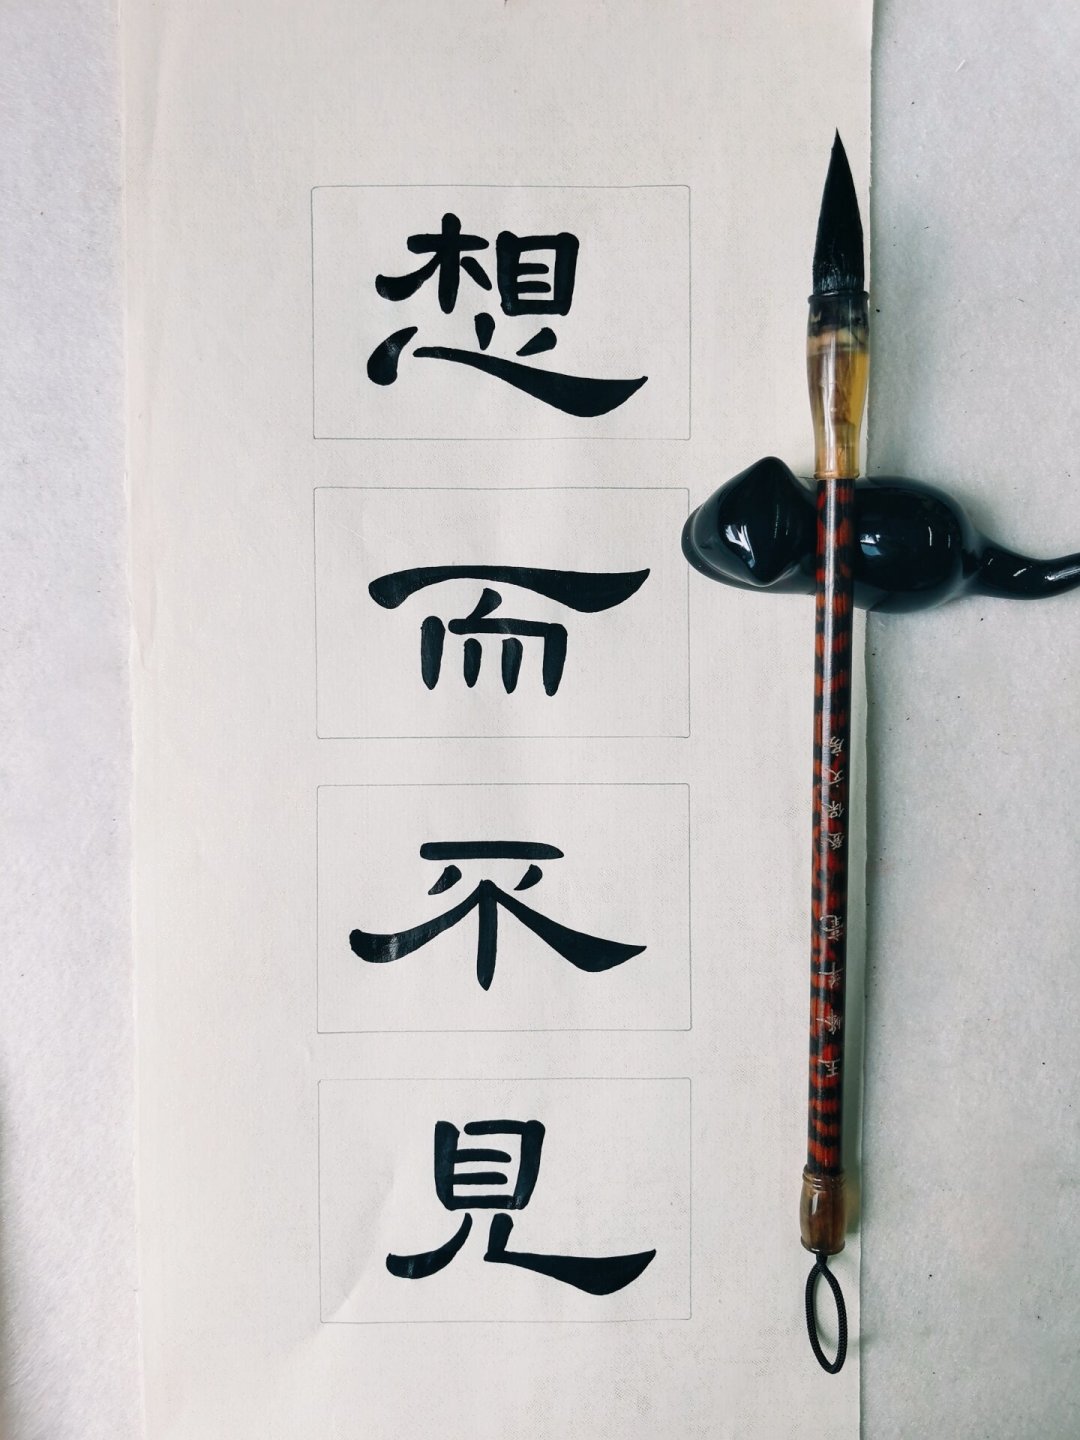 想
而
不
見